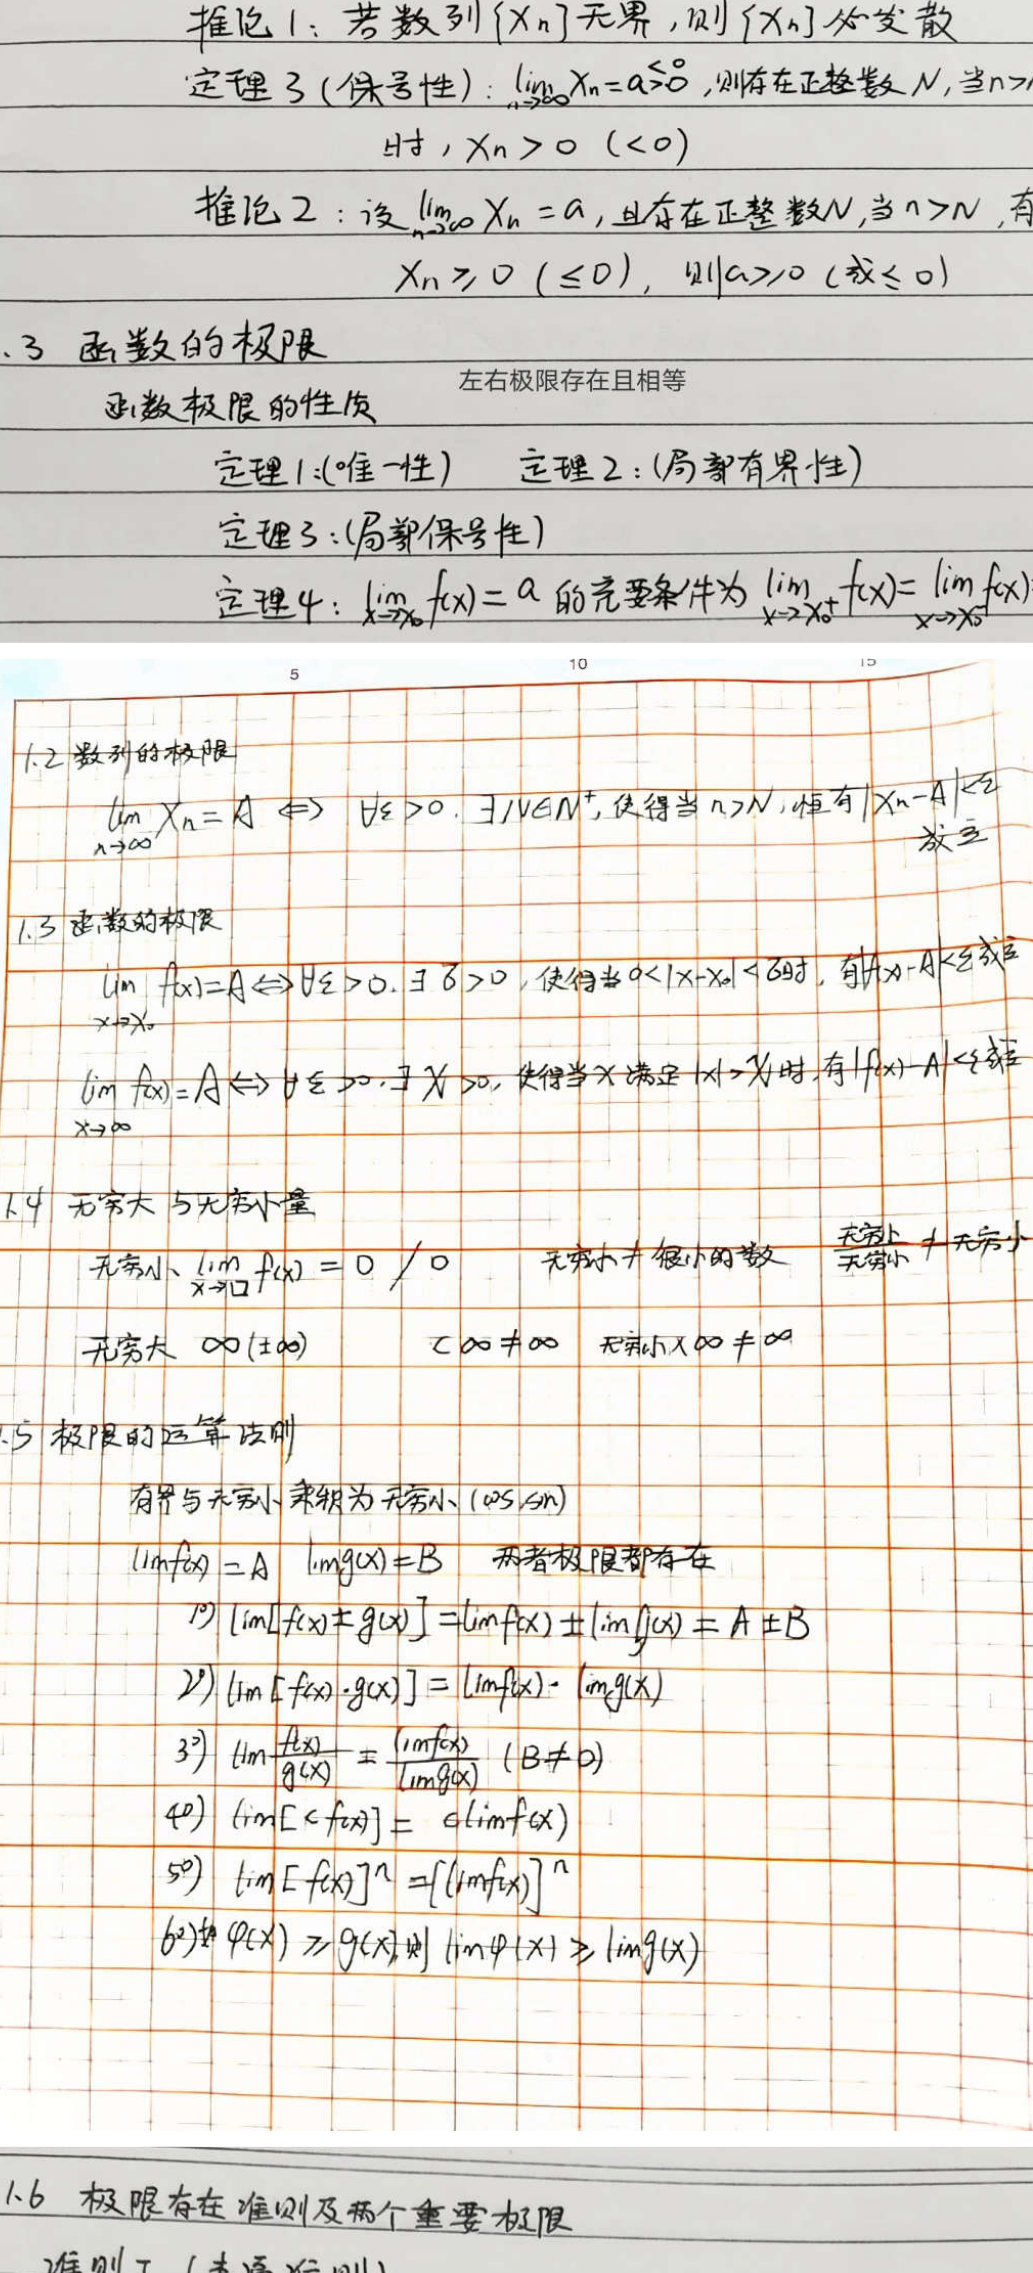 推论1：若数列{Xn}无界，则{Xn}必发散
定理3（保号性）：lim n→∞ Xn=a>0 <0，则存在正整数N，当n>
时，Xn>0（<0）
推论2：设 lim n→∞ Xn=a，且存在正整数N，当n>N，有
Xn≥0（≤0），则a≥0（或≤0）
.3 函数的极限
左右极限存在且相等
函数极限的性质
定理1：（唯一性） 定理2：（局部有界性）
定理3：（局部保号性）
定理4：lim x→x₀ f(x)=a 的充要条件为 lim x→x₀⁺ f(x)=lim x→x₀⁻ f(x)
5 10 15
1.2 数列的极限
lim n→∞ Xn=A ⇔ ∀ε>0.∃N∈N⁺,使得当n>N,恒有|Xn-A|<ε
成立
1.3 函数的极限
lim x→x₀ f(x)=A⇔∀ε>0.∃δ>0,使得当0<|x-x₀|<δ时,有|f(x)-A|<ε成立
lim x→∞ f(x)=A⇔∀ε>0.∃X>0,使得当x满足|x|>X时,有|f(x)-A|<ε成立
1.4 无穷大与无穷小量
无穷小 lim x→□ f(x)=0 / 0 无穷小≠很小的数 无穷小/无穷小≠无穷小
无穷大 ∞(±∞) C∞≠∞ 无穷小×∞≠∞
.5 极限的运算法则
有界与无穷小乘积为无穷小(cos,sin)
limf(x)=A limg(x)=B 两者极限都存在
1°) lim[f(x)±g(x)]=limf(x)±limg(x)=A±B
2°) lim[f(x)·g(x)]=limf(x)·limg(x)
3°) lim f(x)/g(x) = limf(x)/limg(x) (B≠0)
4°) lim[cf(x)]=climf(x)
5°) lim[f(x)]ⁿ=[limf(x)]ⁿ
6°) φ(x)≥g(x),则limφ(x)≥limg(x)
1.6 极限存在准则及两个重要极限
准则I（夹逼准则）